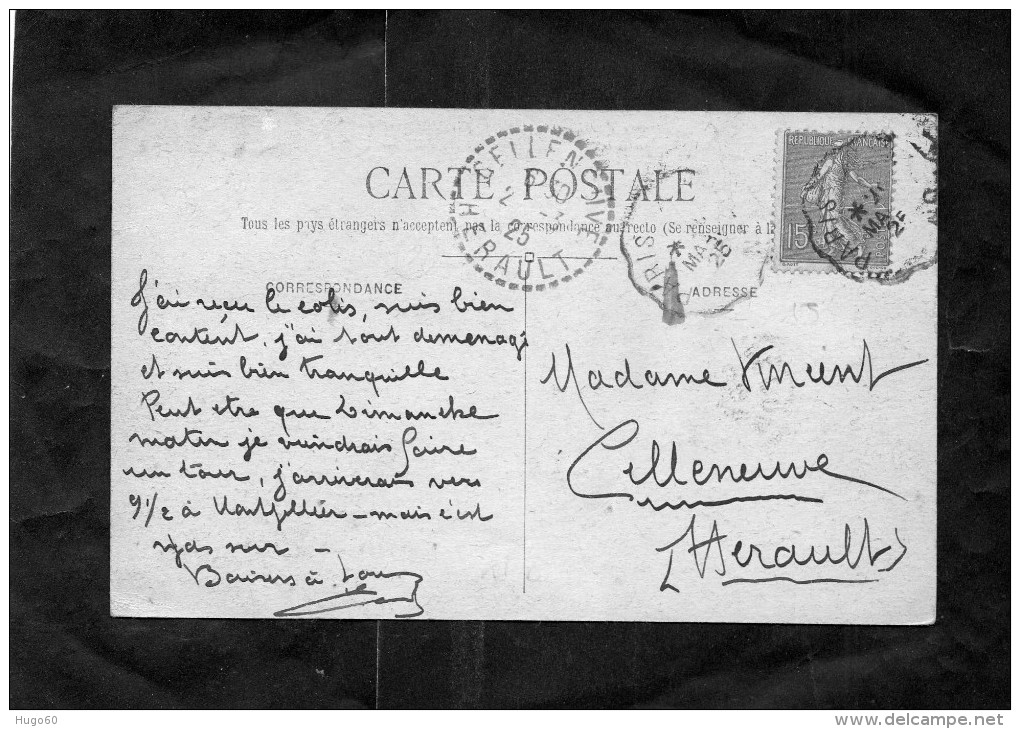 CARTE POSTALE
Tous les pays étrangers n'acceptent pas la correspondance au recto (Se renseigner à la
CORRESPONDANCE
J'ai reçu le colis, suis bien
content, j'ai tout demenagé
et suis bien tranquille
Peut etre que Dimanche
matin je viendrais faire
un tour, j'arriverais vers
9 1/2 à Montpellier – mais c'est
pas sur –
Baisers à tous
ADRESSE
Madame Vincent
Celleneuve
(Herault)
CELLENEUVE
HERAULT
25
REPUBLIQUE FRANÇAISE
15
PARIS
Hugo60
www.delcampe.net